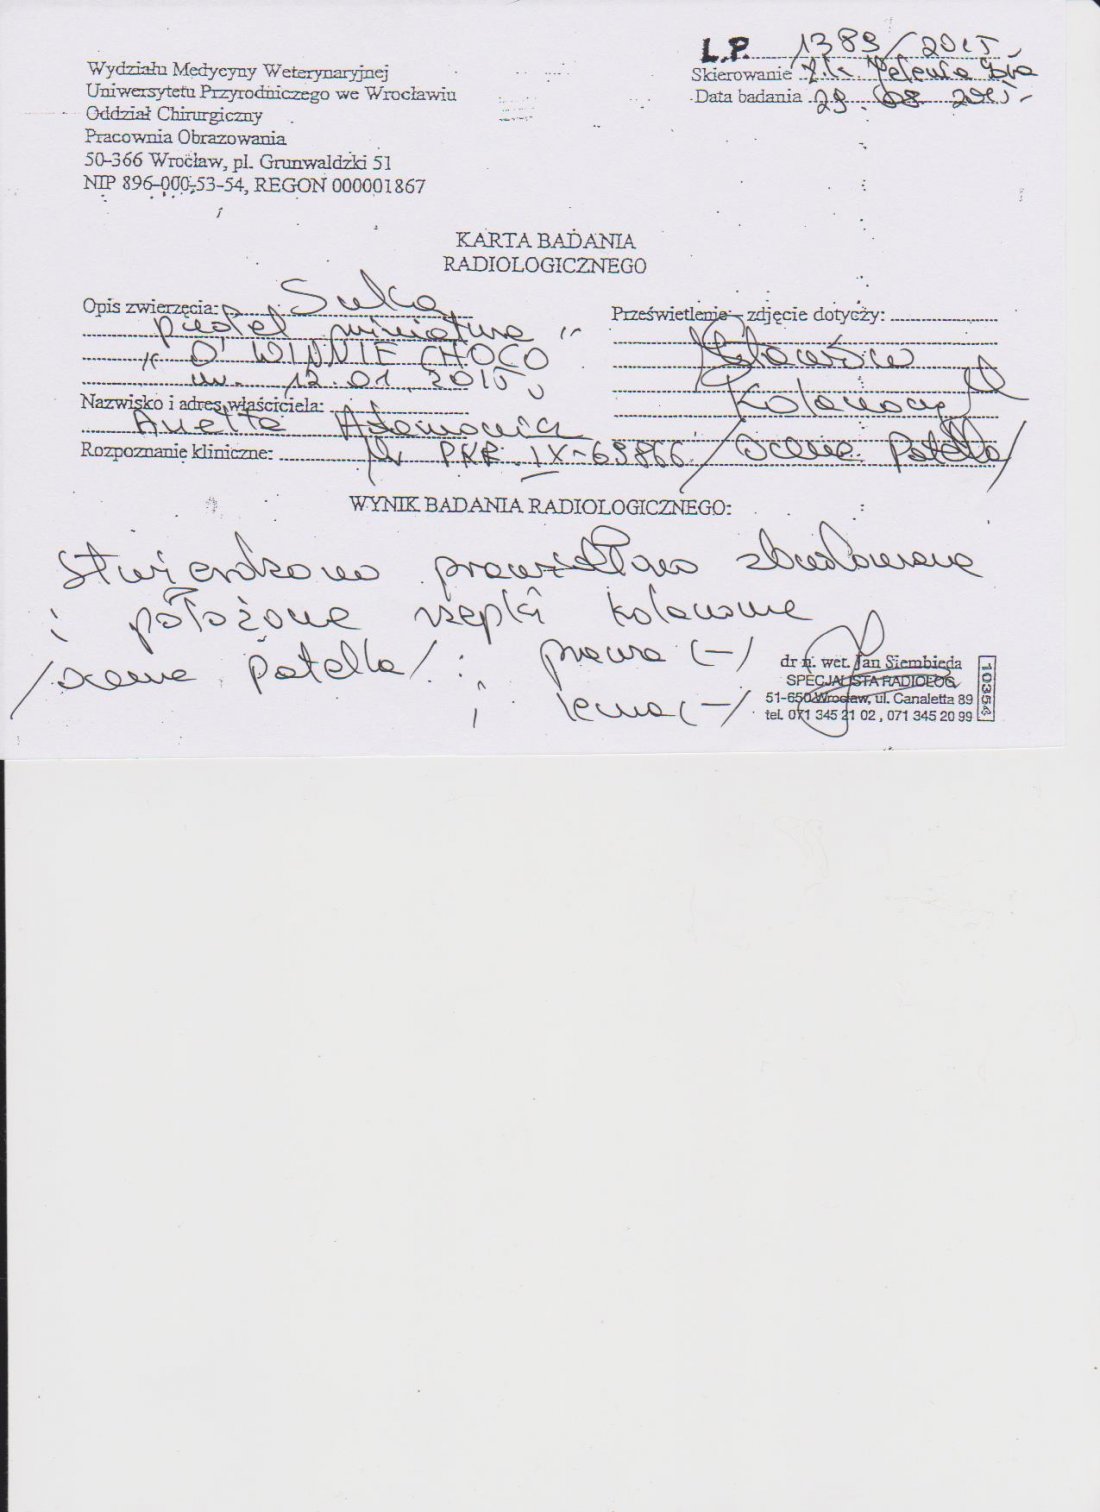 L.P. 1389/2015
Wydziału Medycyny Weterynaryjnej
Uniwersytetu Przyrodniczego we Wrocławiu
Oddział Chirurgiczny
Pracownia Obrazowania
50-366 Wrocław, pl. Grunwaldzki 51
NIP 896-000-53-54, REGON 000001867
Skierowanie
Data badania 29. 08 2015
KARTA BADANIA
RADIOLOGICZNEGO
Opis zwierzęcia: Suka
pudel miniatura
" O' WINNIE CHOCO "
ur. 12.01.2015
Nazwisko i adres właściciela:
Anetta
Rozpoznanie kliniczne: Nr PKR. IX-69866
Prześwietlenie – zdjęcie dotyczy:
Stawów
Kolanowych
/ocena Patella/
WYNIK BADANIA RADIOLOGICZNEGO:
Stwierdzono prawidłowo zbudowane
i położone rzepki kolanowe
/ocena Patella/ : prawa (-)
i lewa (-)
dr n. wet. Jan Siembieda
SPECJALISTA RADIOLOG
51-650 Wrocław, ul. Canaletta 89
tel. 071 345 21 02, 071 345 20 99
10354